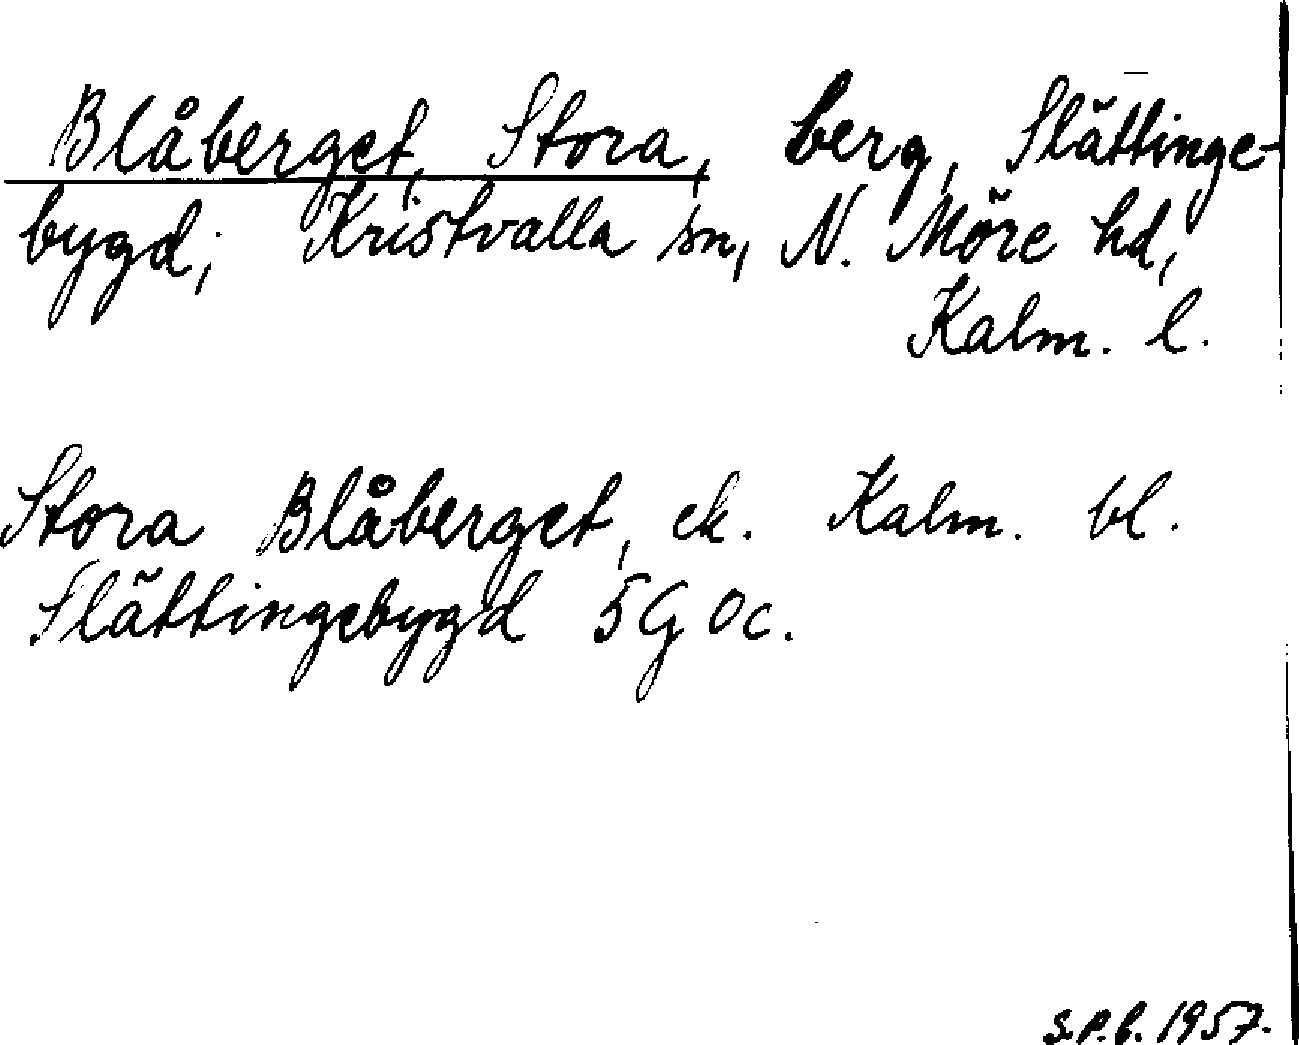 Blåberget, Stora, berg, Slättinge-
bygd; Kristvalla sn, N. Möre hd,
Kalm. l.
Stora Blåberget, ek. Kalm. bl.
Slättingebygd 5G Oc.
S.P.B. 1957.